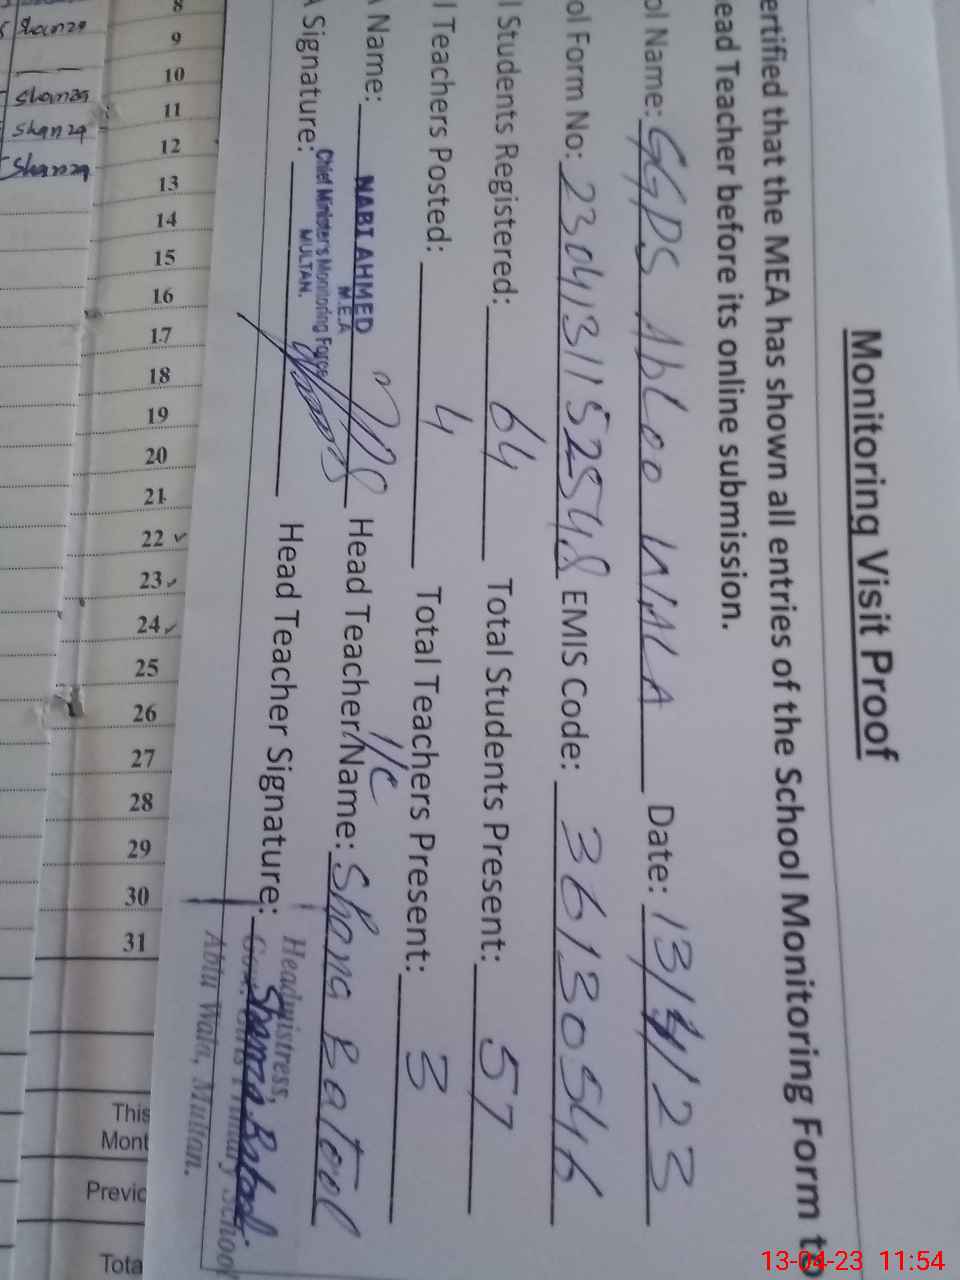 Monitoring Visit Proof
ertified that the MEA has shown all entries of the School Monitoring Form to
ead Teacher before its online submission.
ol Name: GGPS Abloo WALA Date: 13/4/23
ol Form No: 23041311525448 EMIS Code: 36130546
l Students Registered: 64 Total Students Present: 57
l Teachers Posted: 4 Total Teachers Present: 3
A Name: NABI AHMED Head Teacher Name: I/C Shanza Batool
M.E.A
A Signature: Head Teacher Signature: Shanza Batool
Chief Minister's Monitoring Force
MULTAN.
Headmistress,
Govt. Girls Primary School
Ablu Wala, Multan.
Shanza
Shanza
Shanza
Shanza
8
9
10
11
12
13
14
15
16
17
18
19
20
21
22
23
24
25
26
27
28
29
30
31
This
Mont
Previc
Tota
13-04-23 11:54